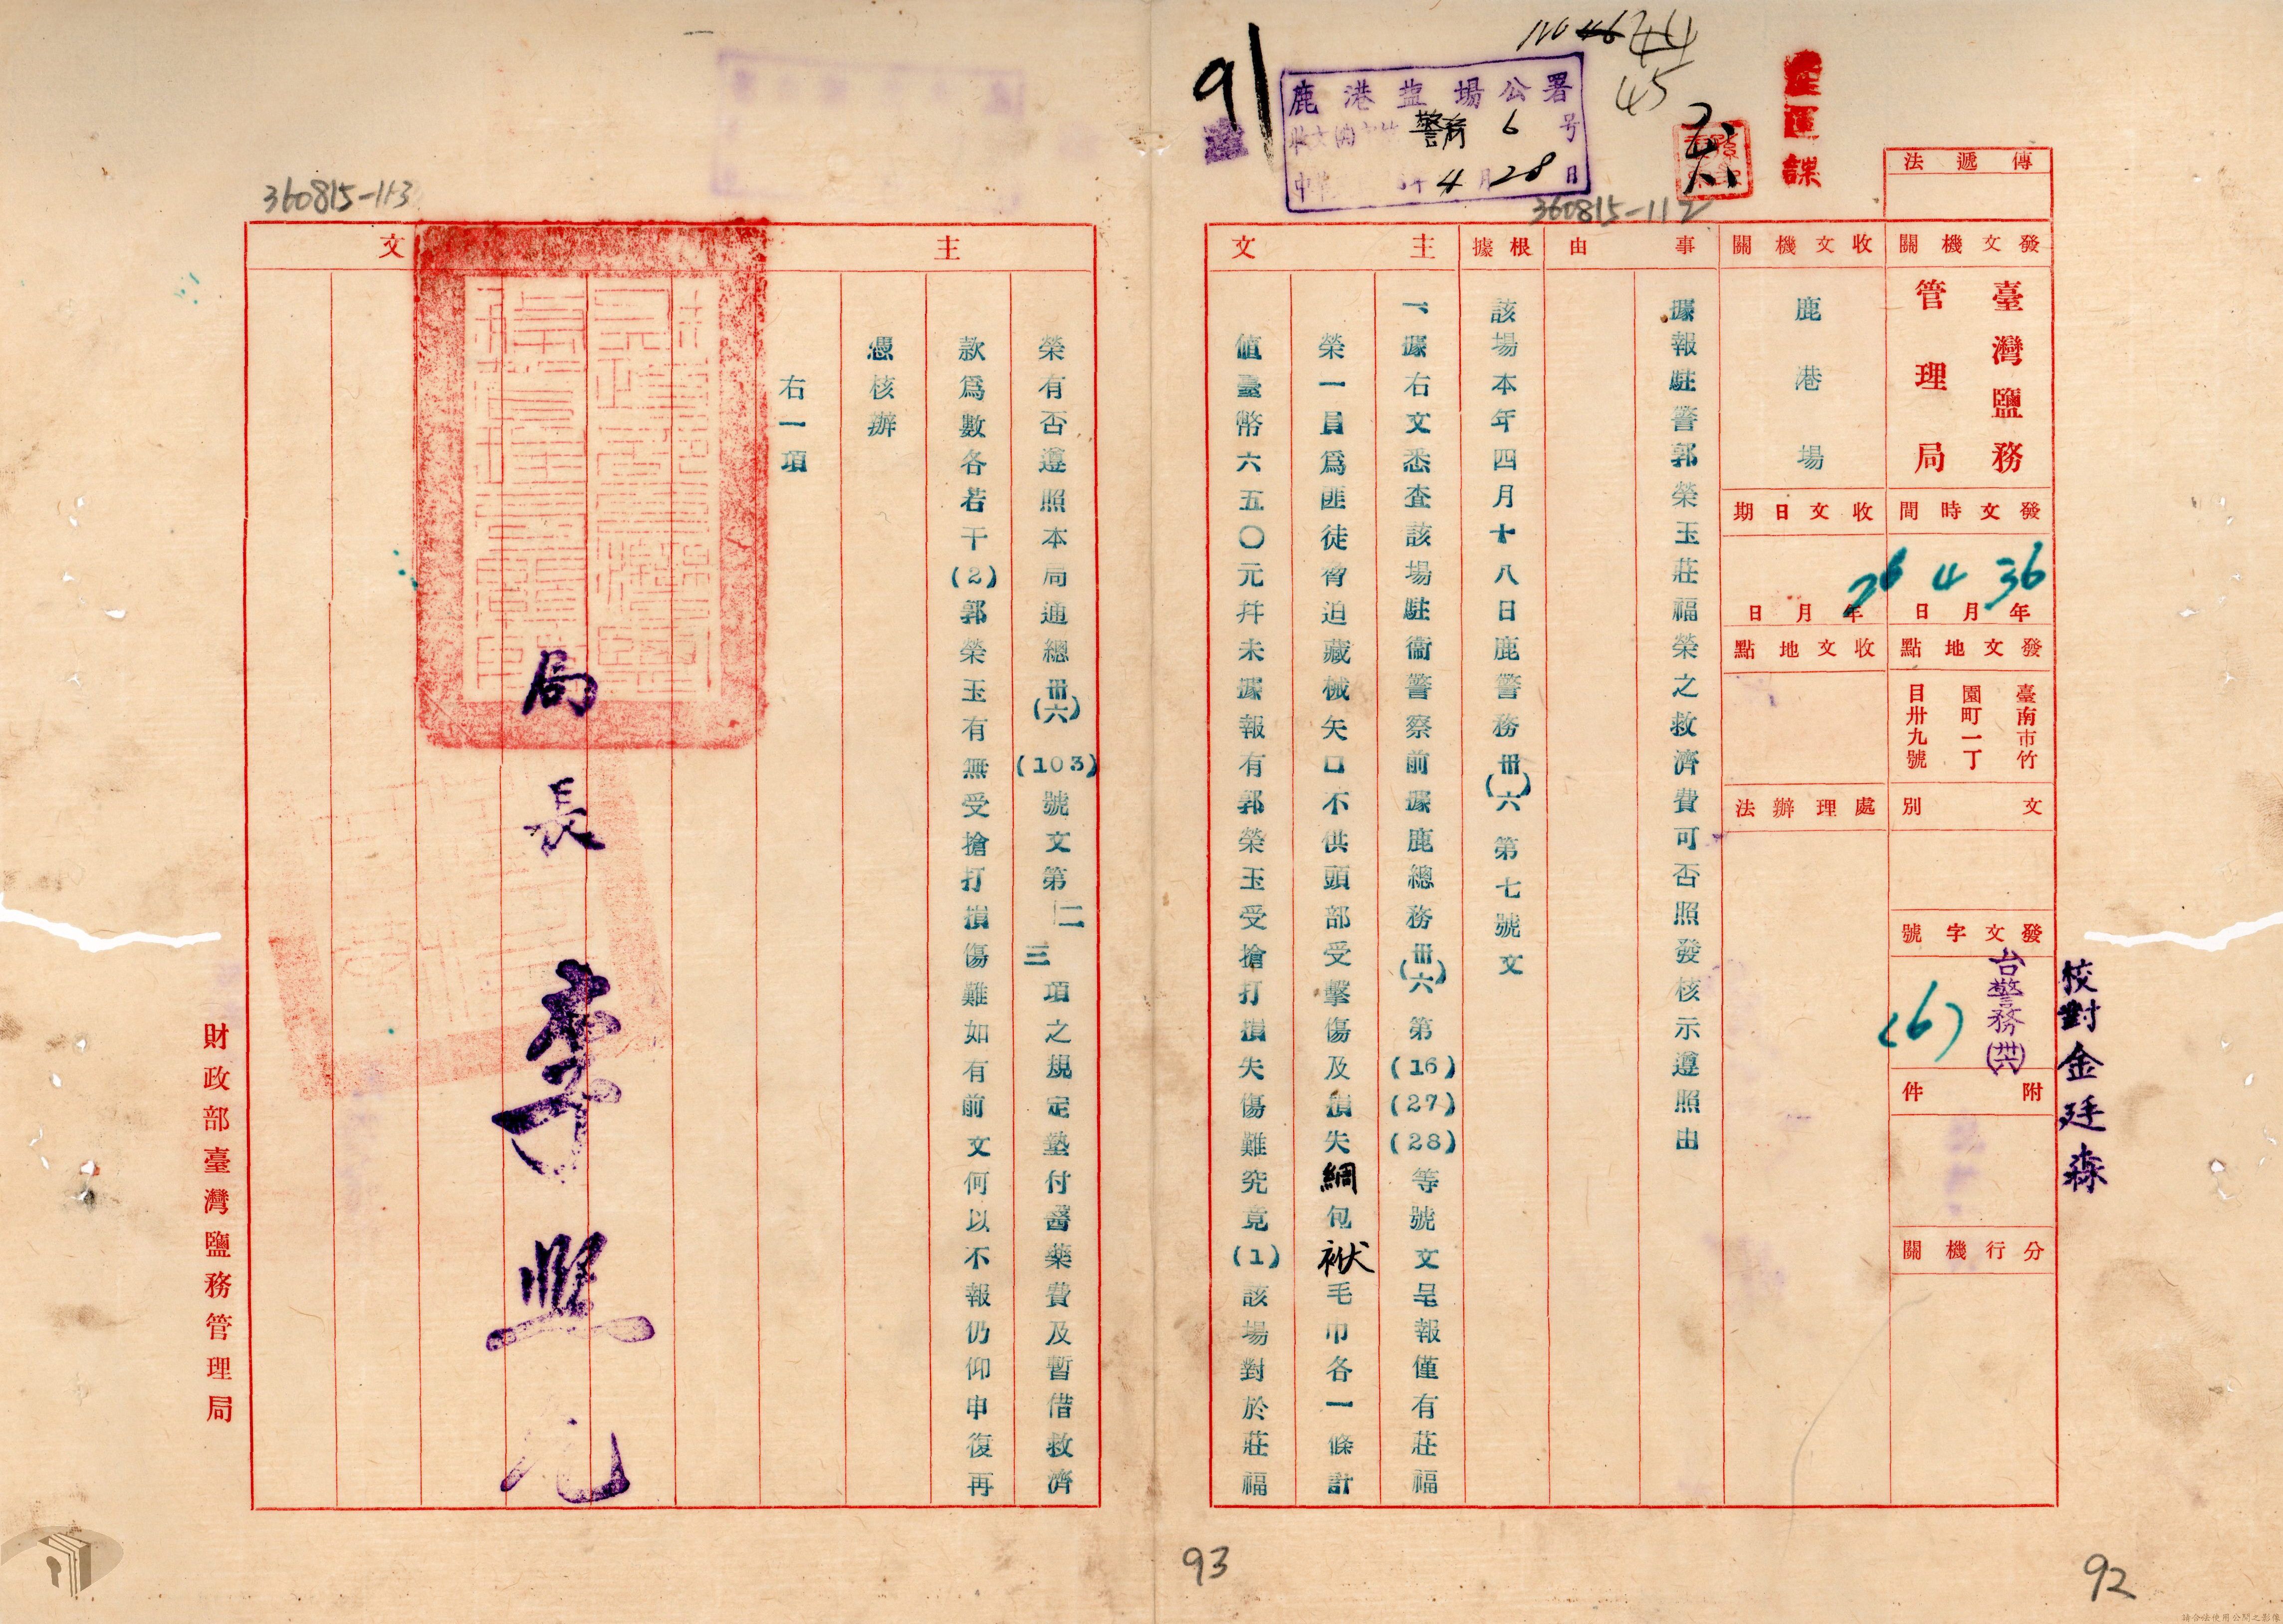 傳遞法
發文機關
臺灣鹽務
管理局
收文機關
鹿港場
事由
據報駐警郭榮玉莊福榮之救濟費可否照發核示遵照由
根據
該場本年四月十八日鹿警務卅(六)第七號文
發文時間
36年4月26日
收文日期
年月日
發文地點
臺南市竹
園町一丁
目卅九號
收文地點
文別
處理辦法
發文字號
台警務(卅六)
(6)
附件
分行機關
校對金廷森
產運課
鹿港盐場公署
警務 6 号
4月28日
91
44
45
360815-112
主文
一、據右文悉查該場駐衞警察前據鹿總務卅(六)第(16)(27)(28)等號文呈報僅有莊福
榮一員爲匪徒脅迫藏械矢口不供頭部受擊傷及損失綢包袱毛巾各一條計
值臺幣六五〇元幷未據報有郭榮玉受搶打損失傷難究竟(1)該場對於莊福
92
360815-113
主文
榮有否遵照本局通總卅(六)(103)號文第二三項之規定墊付醫藥費及暫借救濟
款爲數各若干(2)郭榮玉有無受搶打損傷難如有前文何以不報仍仰申復再
憑核辦
右一項
局長李
財政部臺灣鹽務管理局
93
請合法使用公開之影像